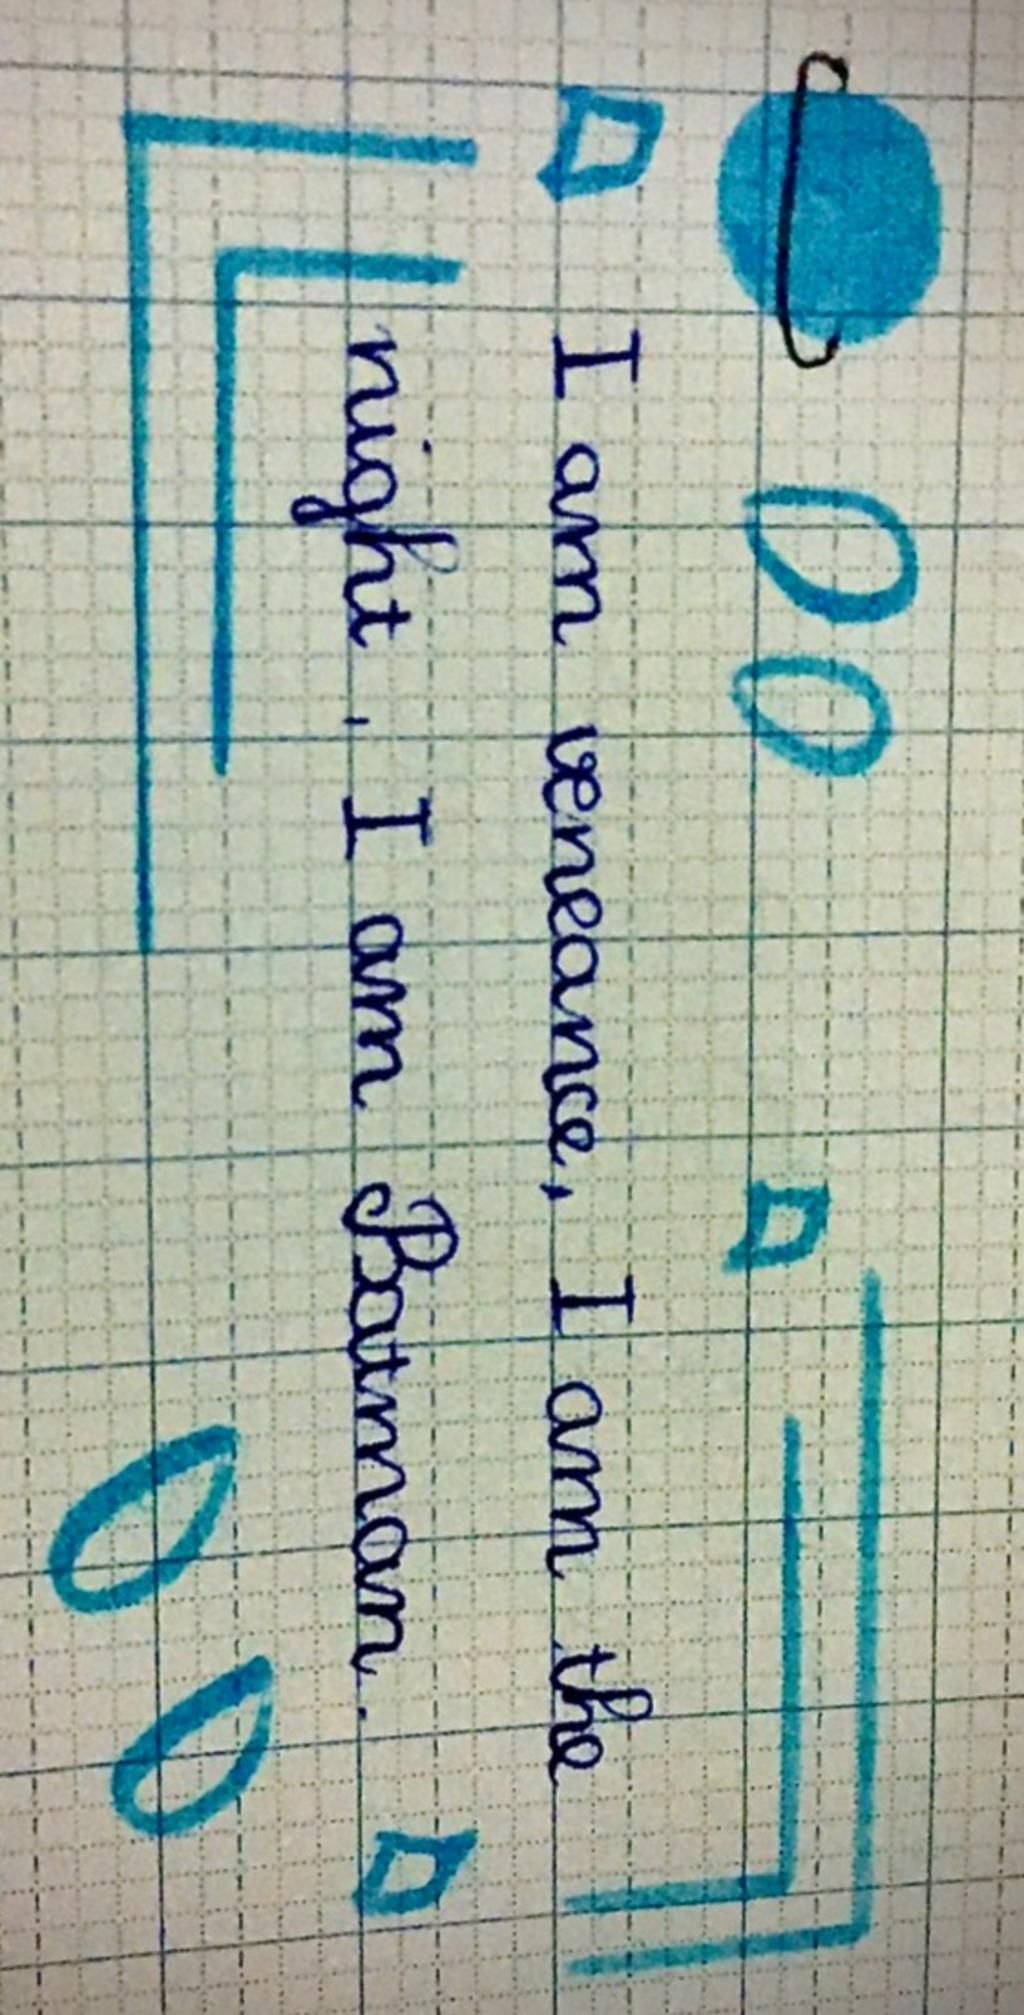 I am veneance, I am the
night, I am Batman.